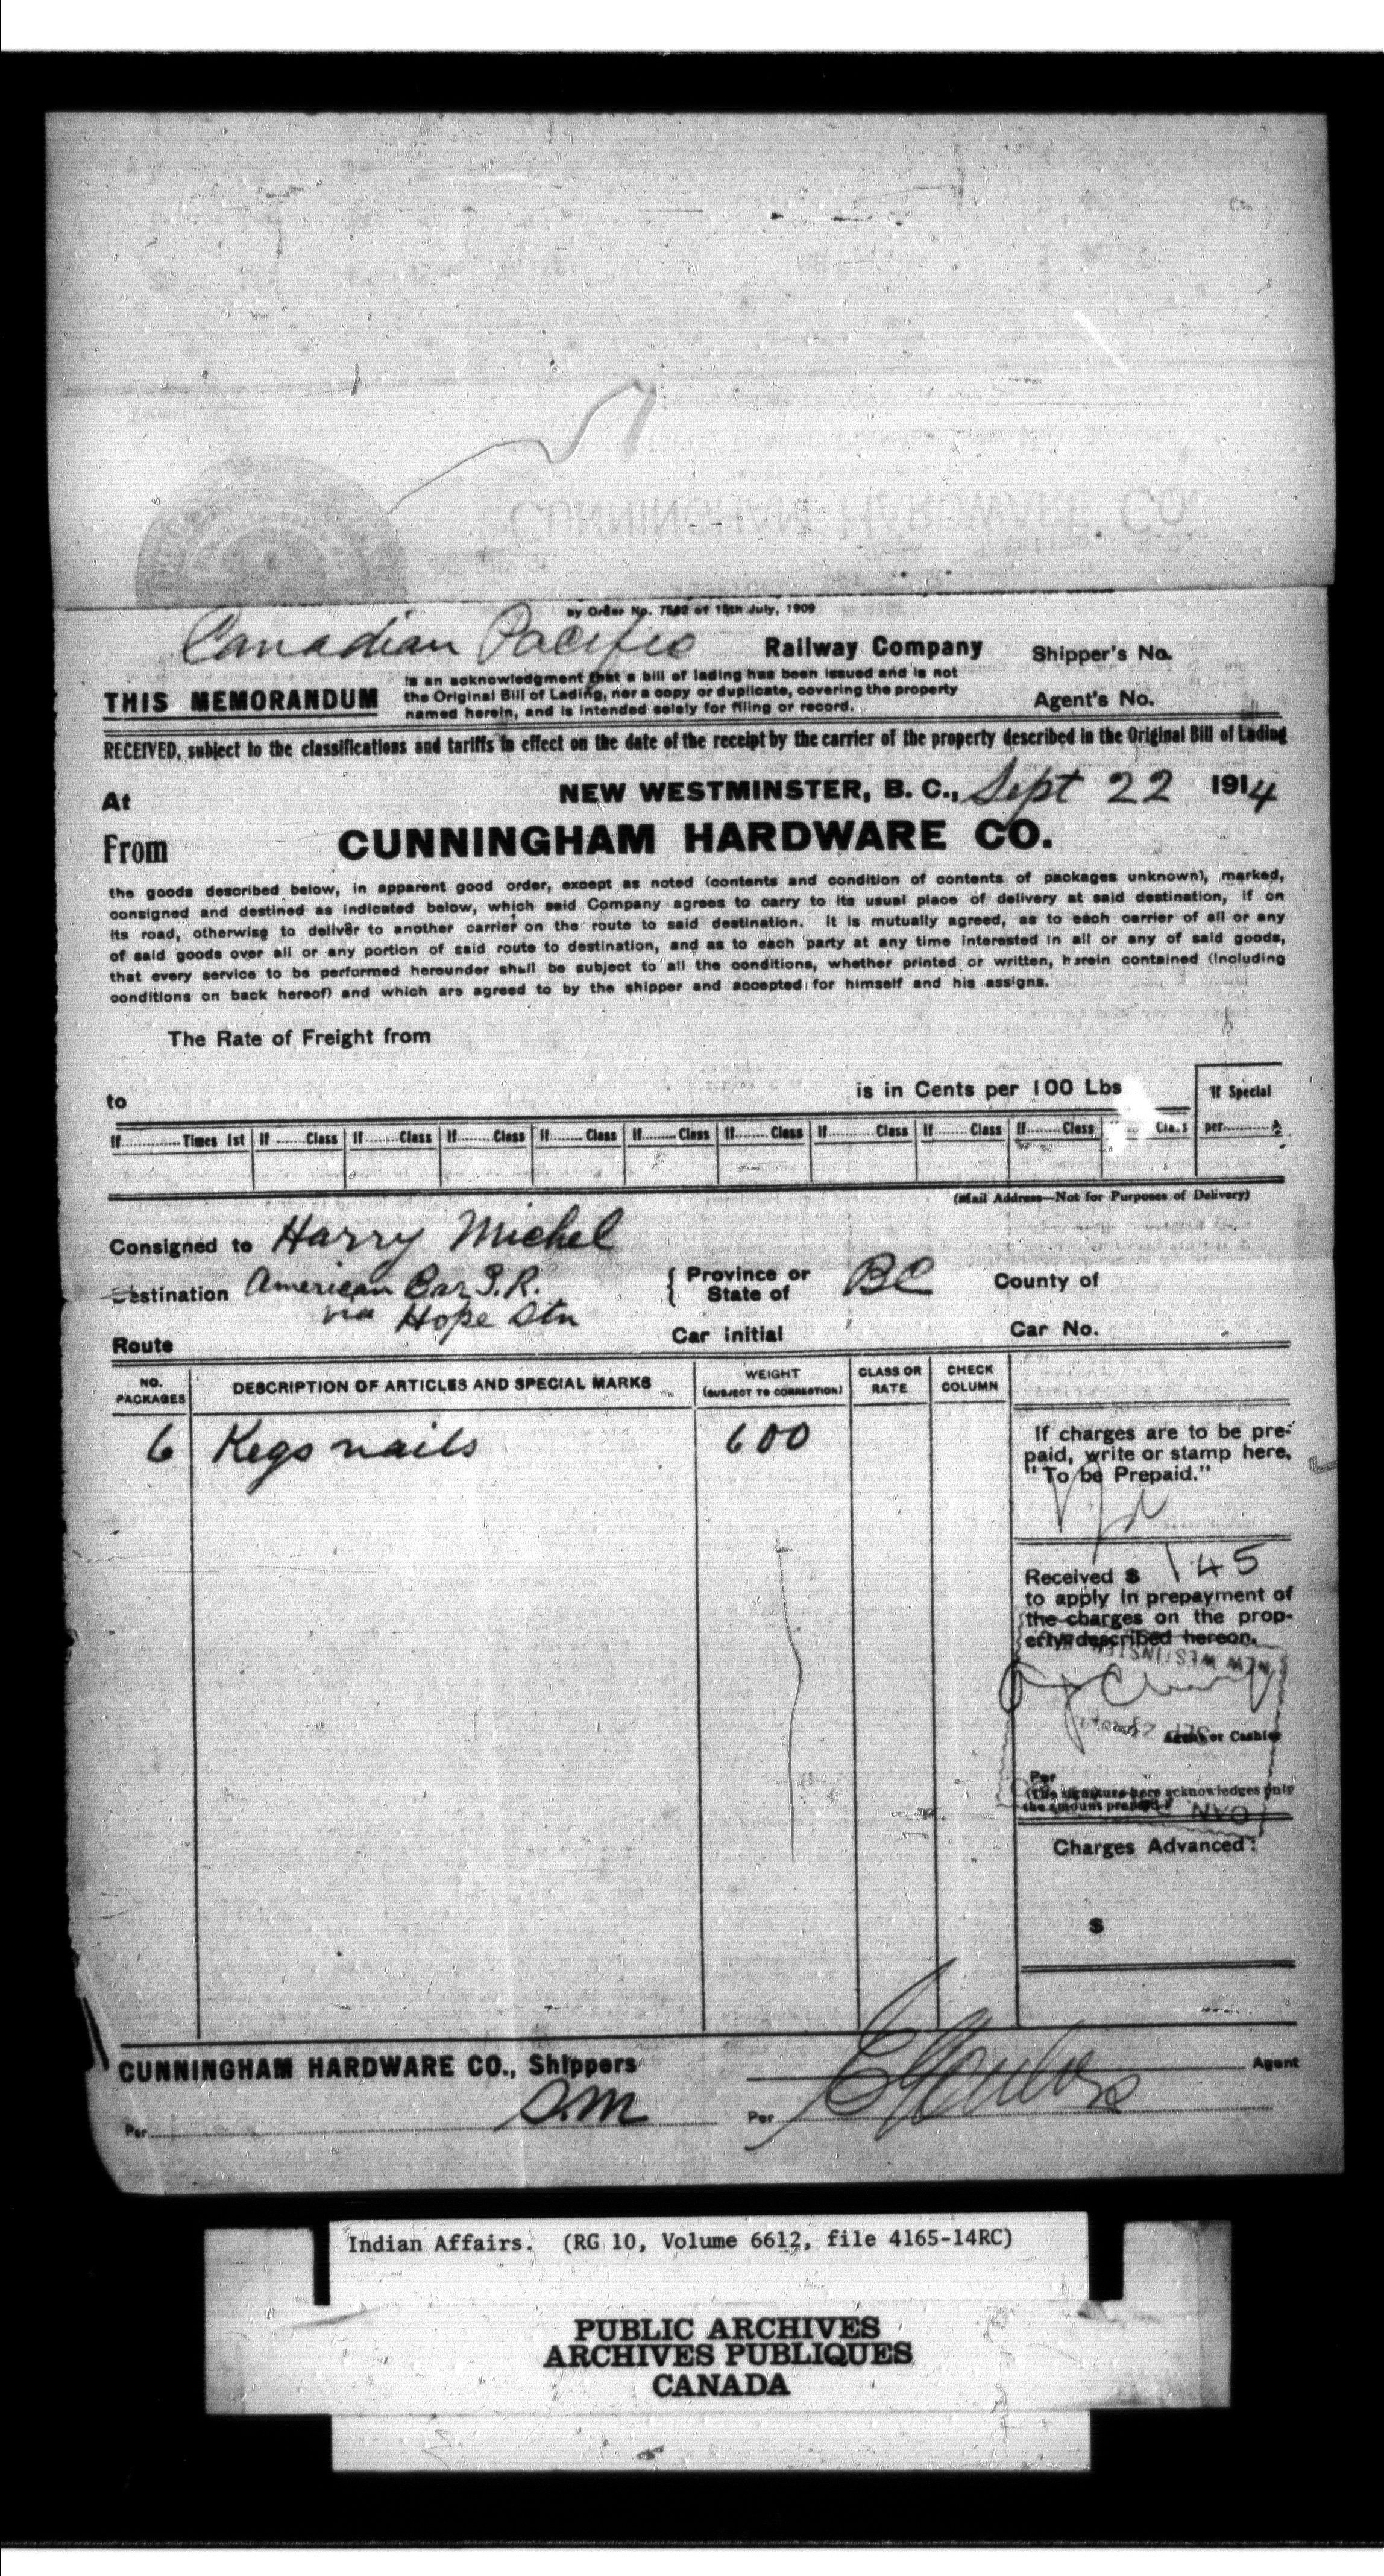 CUNNINGHAM HARDWARE CO.
by Order No. 7562 of 15th July, 1909
Canadian Pacific Railway Company
Shipper's No.
THIS MEMORANDUM
is an acknowledgment that a bill of lading has been issued and is not
the Original Bill of Lading, nor a copy or duplicate, covering the property
named herein, and is intended solely for filing or record.
Agent's No.
RECEIVED, subject to the classifications and tariffs in effect on the date of the receipt by the carrier of the property described in the Original Bill of Lading
At NEW WESTMINSTER, B. C., Sept 22 1914
From CUNNINGHAM HARDWARE CO.
the goods described below, in apparent good order, except as noted (contents and condition of contents of packages unknown), marked,
consigned and destined as indicated below, which said Company agrees to carry to its usual place of delivery at said destination, if on
its road, otherwise to deliver to another carrier on the route to said destination. It is mutually agreed, as to each carrier of all or any
of said goods over all or any portion of said route to destination, and as to each party at any time interested in all or any of said goods,
that every service to be performed hereunder shall be subject to all the conditions, whether printed or written, herein contained (including
conditions on back hereof) and which are agreed to by the shipper and accepted for himself and his assigns.
The Rate of Freight from
to is in Cents per 100 Lbs
If Special
If............Times 1st If.......Class If.......Class If.......Class If.......Class If.......Class If.......Class If.......Class If.......Class If.......Class Class per..........
(Mail Address—Not for Purposes of Delivery)
Consigned to Harry Michel
Destination American Bar I.R. Province or State of BC County of
via Hope Stn
Route Car Initial Car No.
NO. PACKAGES DESCRIPTION OF ARTICLES AND SPECIAL MARKS WEIGHT (SUBJECT TO CORRECTION) CLASS OR RATE CHECK COLUMN
6 Kegs nails 600
If charges are to be pre-
paid, write or stamp here,
"To be Prepaid."
Received $ 1 45
to apply in prepayment of
the charges on the prop-
erty described hereon.
NEW WESTMINSTER
Agent or Cashier
Per
(The signature here acknowledges only
the amount prepaid.)
CAN
Charges Advanced:
$
CUNNINGHAM HARDWARE CO., Shippers
Agent
Per D.M Per
Indian Affairs. (RG 10, Volume 6612, file 4165-14RC)
PUBLIC ARCHIVES
ARCHIVES PUBLIQUES
CANADA